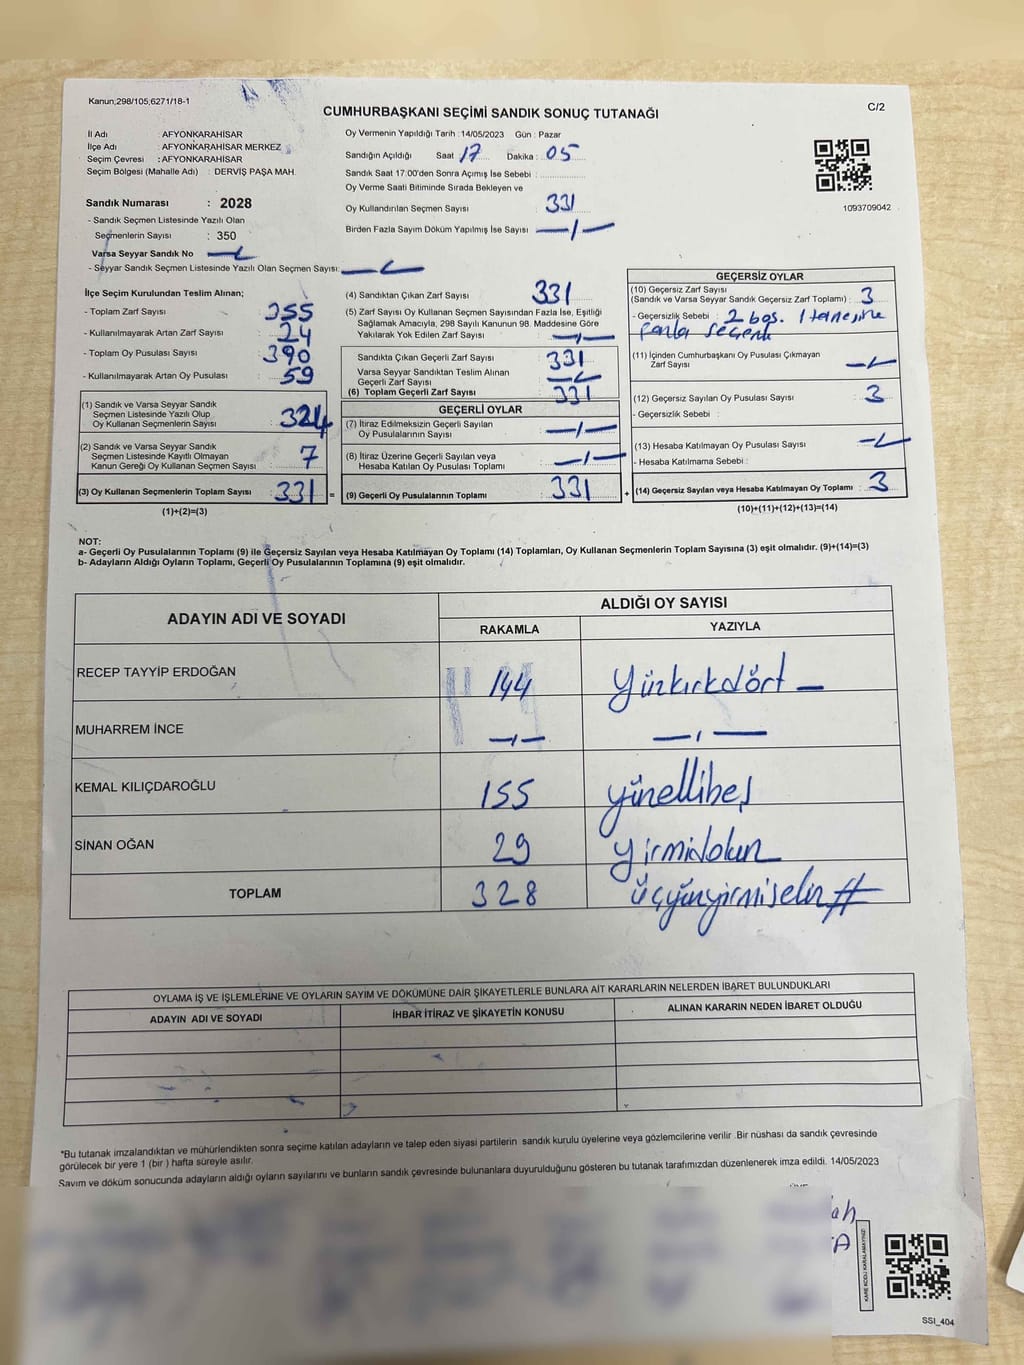 Kanun;298/105;6271/18-1
CUMHURBAŞKANI SEÇİMİ SANDIK SONUÇ TUTANAĞI
C/2
İl Adı : AFYONKARAHİSAR
İlçe Adı : AFYONKARAHİSAR MERKEZ
Seçim Çevresi : AFYONKARAHİSAR
Seçim Bölgesi (Mahalle Adı) : DERVİŞ PAŞA MAH.
Sandık Numarası : 2028
- Sandık Seçmen Listesinde Yazılı Olan
Seçmenlerin Sayısı : 350
Varsa Seyyar Sandık No
- Seyyar Sandık Seçmen Listesinde Yazılı Olan Seçmen Sayısı:
Oy Vermenin Yapıldığı Tarih : 14/05/2023 Gün : Pazar
Sandığın Açıldığı Saat 17 Dakika : 05
Sandık Saat 17:00'den Sonra Açımış İse Sebebi :
Oy Verme Saati Bitiminde Sırada Bekleyen ve
Oy Kullandırılan Seçmen Sayısı 331
Birden Fazla Sayım Döküm Yapılmış İse Sayısı —/—
1093709042
İlçe Seçim Kurulundan Teslim Alınan;
- Toplam Zarf Sayısı 355
- Kullanılmayarak Artan Zarf Sayısı : 24
- Toplam Oy Pusulası Sayısı 390
- Kullanılmayarak Artan Oy Pusulası 59
(1) Sandık ve Varsa Seyyar Sandık
Seçmen Listesinde Yazılı Olup
Oy Kullanan Seçmenlerin Sayısı 324
(2) Sandık ve Varsa Seyyar Sandık
Seçmen Listesinde Kayıtlı Olmayan
Kanun Gereği Oy Kullanan Seçmen Sayısı 7
(3) Oy Kullanan Seçmenlerin Toplam Sayısı 331 =
(1)+(2)=(3)
(4) Sandıktan Çıkan Zarf Sayısı 331
(5) Zarf Sayısı Oy Kullanan Seçmen Sayısından Fazla İse, Eşitliği
Sağlamak Amacıyla, 298 Sayılı Kanunun 98. Maddesine Göre
Yakılarak Yok Edilen Zarf Sayısı : —/—
Sandıkta Çıkan Geçerli Zarf Sayısı 331
Varsa Seyyar Sandıktan Teslim Alınan
Geçerli Zarf Sayısı
(6) Toplam Geçerli Zarf Sayısı 331
GEÇERLİ OYLAR
(7) İtiraz Edilmeksizin Geçerli Sayılan
Oy Pusulalarının Sayısı —/—
(8) İtiraz Üzerine Geçerli Sayılan veya
Hesaba Katılan Oy Pusulası Toplamı —/—
(9) Geçerli Oy Pusulalarının Toplamı : 331 +
GEÇERSİZ OYLAR
(10) Geçersiz Zarf Sayısı
(Sandık ve Varsa Seyyar Sandık Geçersiz Zarf Toplamı) : 3
- Geçersizlik Sebebi : 2 boş. 1 tanesine
fazla
(11) İçinden Cumhurbaşkanı Oy Pusulası Çıkmayan
Zarf Sayısı
(12) Geçersiz Sayılan Oy Pusulası Sayısı 3
- Geçersizlik Sebebi :
(13) Hesaba Katılmayan Oy Pusulası Sayısı
- Hesaba Katılmama Sebebi :
(14) Geçersiz Sayılan veya Hesaba Katılmayan Oy Toplamı : 3
(10)+(11)+(12)+(13)=(14)
NOT:
a- Geçerli Oy Pusulalarının Toplamı (9) ile Geçersiz Sayılan veya Hesaba Katılmayan Oy Toplamı (14) Toplamları, Oy Kullanan Seçmenlerin Toplam Sayısına (3) eşit olmalıdır. (9)+(14)=(3)
b- Adayların Aldığı Oyların Toplamı, Geçerli Oy Pusulalarının Toplamına (9) eşit olmalıdır.
ADAYIN ADI VE SOYADI
ALDIĞI OY SAYISI
RAKAMLA YAZIYLA
RECEP TAYYİP ERDOĞAN 144 Yüzkırkdört —
MUHARREM İNCE —/— —/—
KEMAL KILIÇDAROĞLU 155 yüzellibeş
SİNAN OĞAN 29 yirmidokuz
TOPLAM 328 üçyüzyirmisekiz
OYLAMA İŞ VE İŞLEMLERİNE VE OYLARIN SAYIM VE DÖKÜMÜNE DAİR ŞİKAYETLERLE BUNLARA AİT KARARLARIN NELERDEN İBARET BULUNDUKLARI
ADAYIN ADI VE SOYADI İHBAR İTİRAZ VE ŞİKAYETİN KONUSU ALINAN KARARIN NEDEN İBARET OLDUĞU
*Bu tutanak imzalandıktan ve mühürlendikten sonra seçime katılan adayların ve talep eden siyasi partilerin sandık kurulu üyelerine veya gözlemcilerine verilir .Bir nüshası da sandık çevresinde
görülecek bir yere 1 (bir ) hafta süreyle asılır.
Sayım ve döküm sonucunda adayların aldığı oyların sayılarını ve bunların sandık çevresinde bulunanlara duyurulduğunu gösteren bu tutanak tarafımızdan düzenlenerek imza edildi. 14/05/2023
KARE KODU KARALAMAYINIZ!
SSI_404